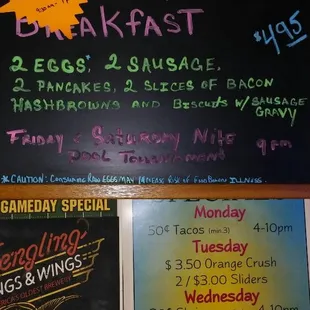 BREAKFAST
$4.95
2 EGGS, 2 SAUSAGE,
2 PANCAKES, 2 SLICES OF BACON
HASHBROWNS AND BISCUITS W/ SAUSAGE
GRAVY
FRIDAY & SATURDAY NITE
POOL TOURNAMENT 9pm
*CAUTION: CONSUMING RAW EGGS MAY INCREASE RISK OF FOODBORNE ILLNESS.
GAMEDAY SPECIAL
engling
NGS & WINGS
RICA'S OLDEST BREWERY
Monday
50¢ Tacos (min.3) 4-10pm
Tuesday
$ 3.50 Orange Crush
2 / $3.00 Sliders
Wednesday
4-10pm